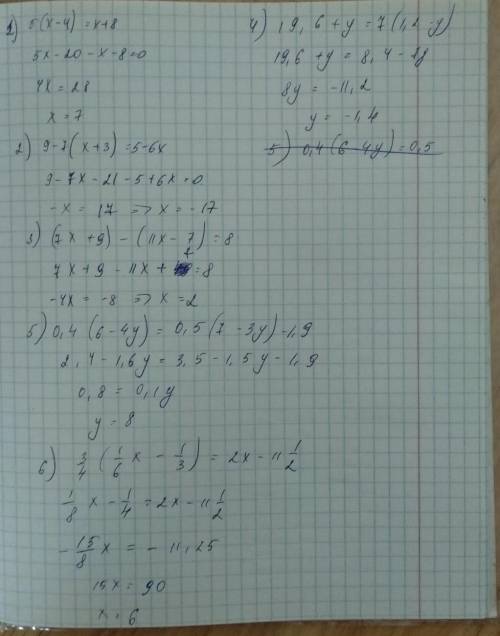 1) 5(x-4)=x+8
5x-20-x-8=0
4x=28
x=7
2) 9-7(x+3)=5-6x
9-7x-21-5+6x=0
-x=17 => x=-17
3) (7x+9)-(11x-7)=8
7x+9-11x+7=8
-4x=-8 => x=2
4) 19,6+y=7(1,2-y)
19,6+y=8,4-7y
8y=-11,2
y=-1,4
5) 0,4(6-4y)=0,5
5) 0,4(6-4y)=0,5(7-3y)-1,9
2,4-1,6y=3,5-1,5y-1,9
0,8=0,1y
y=8
6) 3/4(1/6x-1/3)=2x-11 1/2
1/8x-1/4=2x-11 1/2
-15/8x=-11,25
15x=90
x=6